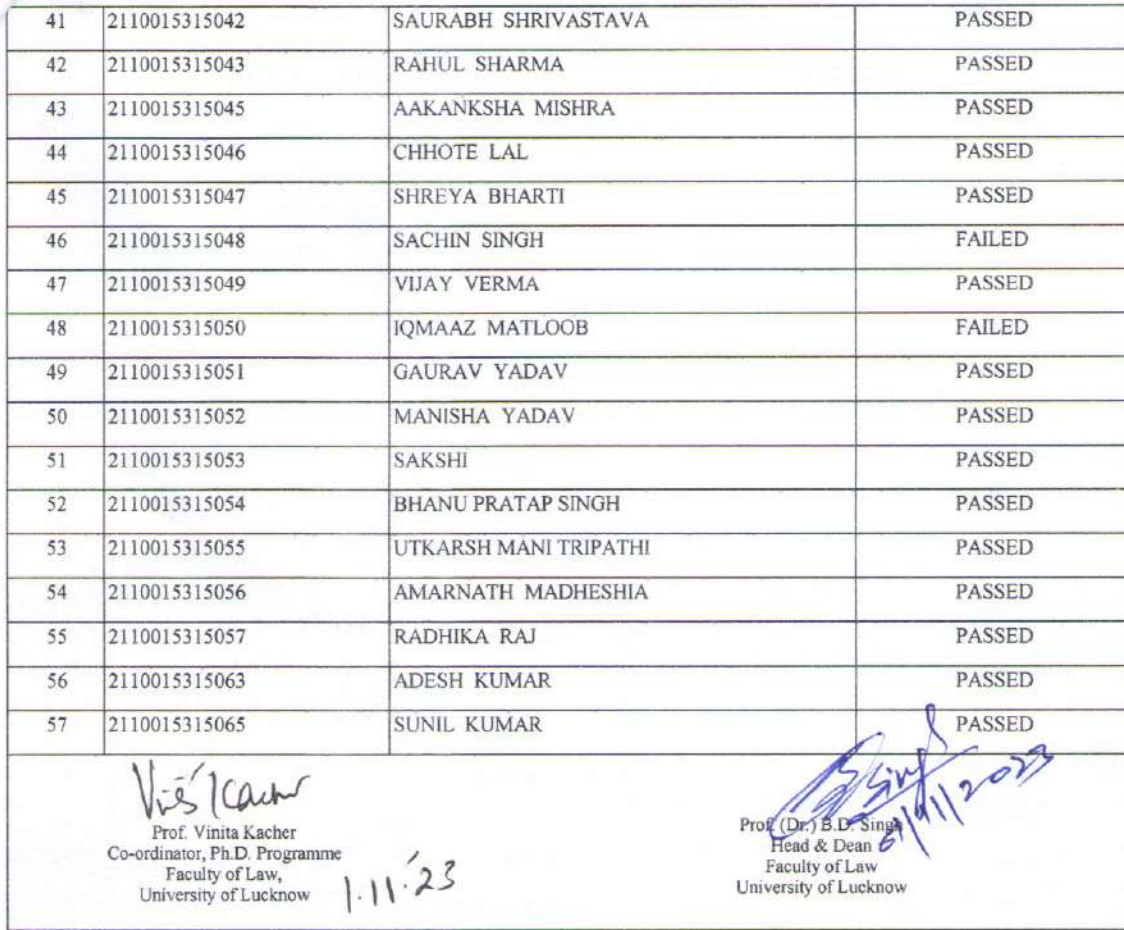 41 2110015315042 SAURABH SHRIVASTAVA PASSED
42 2110015315043 RAHUL SHARMA PASSED
43 2110015315045 AAKANKSHA MISHRA PASSED
44 2110015315046 CHHOTE LAL PASSED
45 2110015315047 SHREYA BHARTI PASSED
46 2110015315048 SACHIN SINGH FAILED
47 2110015315049 VIJAY VERMA PASSED
48 2110015315050 IQMAAZ MATLOOB FAILED
49 2110015315051 GAURAV YADAV PASSED
50 2110015315052 MANISHA YADAV PASSED
51 2110015315053 SAKSHI PASSED
52 2110015315054 BHANU PRATAP SINGH PASSED
53 2110015315055 UTKARSH MANI TRIPATHI PASSED
54 2110015315056 AMARNATH MADHESHIA PASSED
55 2110015315057 RADHIKA RAJ PASSED
56 2110015315063 ADESH KUMAR PASSED
57 2110015315065 SUNIL KUMAR PASSED
Kacher
Prof. Vinita Kacher
Co-ordinator, Ph.D. Programme
Faculty of Law,
University of Lucknow
1.11.'23
Singh
01/11/2023
Prof. (Dr.) B.D. Singh
Head & Dean
Faculty of Law
University of Lucknow